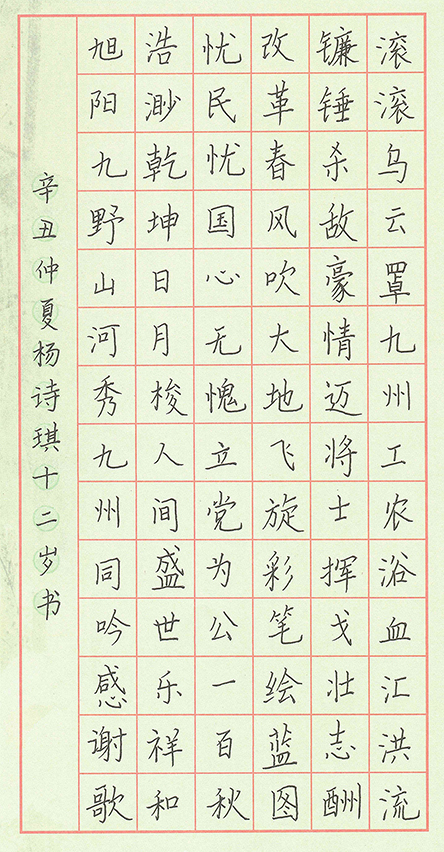 滚滚乌云罩九州工农浴血汇洪流
镰锤杀敌豪情迈将士挥戈壮志酬
改革春风吹大地飞旋彩笔绘蓝图
忧民忧国心无愧立党为公一百秋
浩渺乾坤日月梭人间盛世乐祥和
旭阳九野山河秀九州同吟感谢歌
辛丑仲夏杨诗琪十二岁书